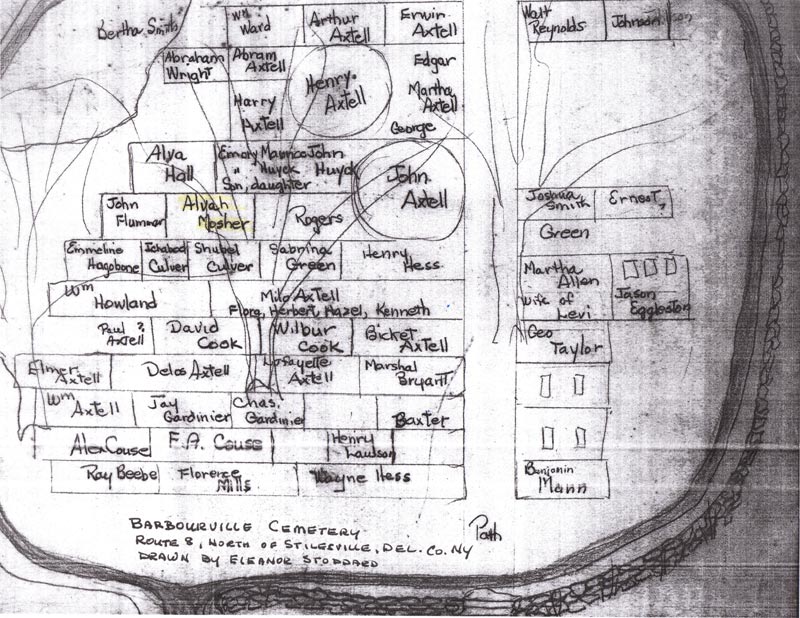 Bertha Smith
Wm
Ward
Arthur
Axtell
Erwin
Axtell
Walt
Reynolds
Johnson
Abraham
Wright
Abram
Axtell
Henry
Axtell
Edgar
Martha
Axtell
George
Harry
Axtell
Alva
Hall
Emory Maurice John
" Huyck Huyck
Son, daughter
John
Axtell
John
Flummer
Alvah
Mosher
Rogers
Joshua
Smith
Ernest
Green
Emmeline
Hagobone
Ichabod
Culver
Shubel
Culver
Sabrina
Green
Henry
Hess
Martha
Allen
Wife of
Levi
Jason
Eggleston
Wm
Howland
Milo Axtell
Flora, Herbert, Hazel, Kenneth
Paul ?
Axtell
David
Cook
Wilbur
Cook
Bicket
Axtell
Geo
Taylor
Elmer
Axtell
Delos Axtell
Lafayette
Axtell
Marshal
Bryant
Wm
Axtell
Jay
Gardinier
Chas.
Gardinier
Baxter
Alex Couse
F.A. Couse
Henry
Lawson
Ray Beebe
Florence
Mills
Wayne Hess
Benjamin
Mann
Path
BARBOURVILLE CEMETERY
ROUTE 8, NORTH OF STILESVILLE, DEL. CO. NY
DRAWN BY ELEANOR STODDARD